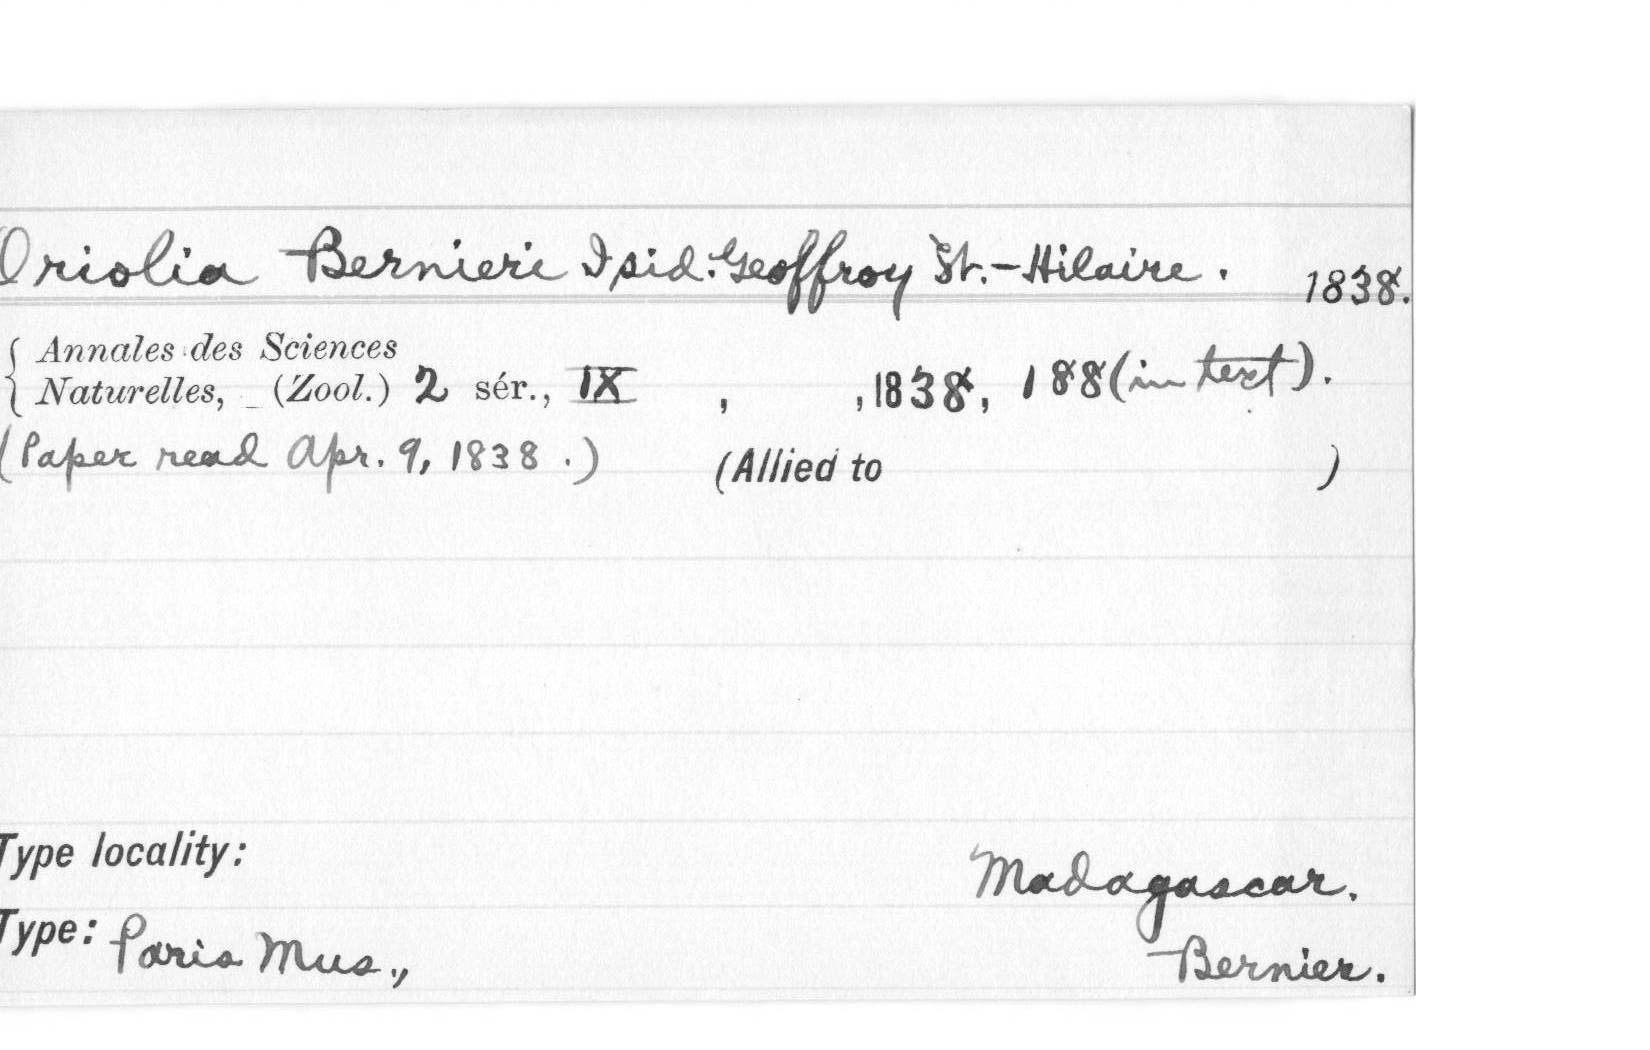 Oriolia Bernieri Isid. Geoffroy St.-Hilaire. 1838.
{ Annales des Sciences
Naturelles, _ (Zool.) 2 sér., IX , , 1838, 188 (in text).
(Paper read Apr. 9, 1838.) (Allied to )
Type locality: Madagascar.
Type: Paris Mus., Bernier.